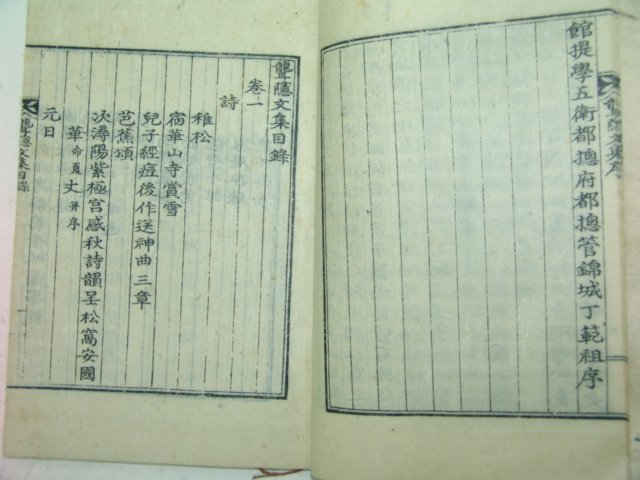 館提學五衛都摠府都摠管錦城丁範祖序
聾隱文集序
聾隱文集目錄
卷一
詩
稚松
宿華山寺賞雪
兒子經痘後作送神曲三章
芭蕉頌
次潯陽紫極宮感秋詩韻呈松窩安國
華命夏丈并序
元日
聾隱文集目錄